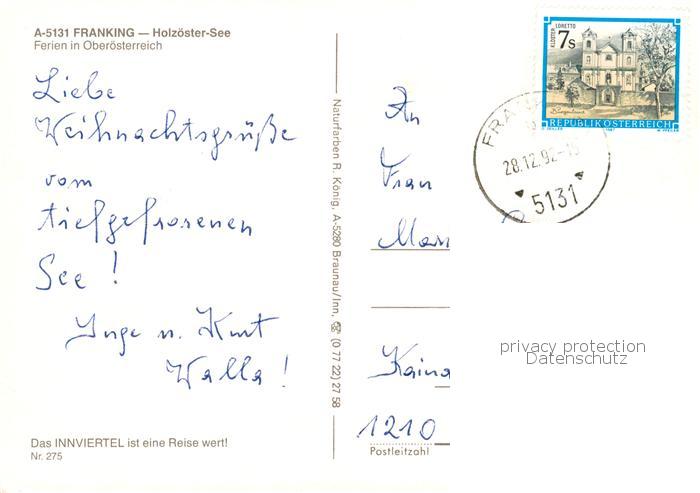 A-5131 FRANKING — Holzöster-See
Ferien in Oberösterreich
Liebe
Weihnachtsgrüße
vom
tiefgefrorenen
See !
Inge u. Kurt
Walla !
Das INNVIERTEL ist eine Reise wert!
Nr. 275
Naturfarben R. König, A-5280 Braunau/Inn, ☎ (0 77 22) 27 58
KLOSTER LORETTO
7s
REPUBLIK ÖSTERREICH
28.12.92
5131
An
Frau
1210
Postleitzahl
privacy protection
Datenschutz